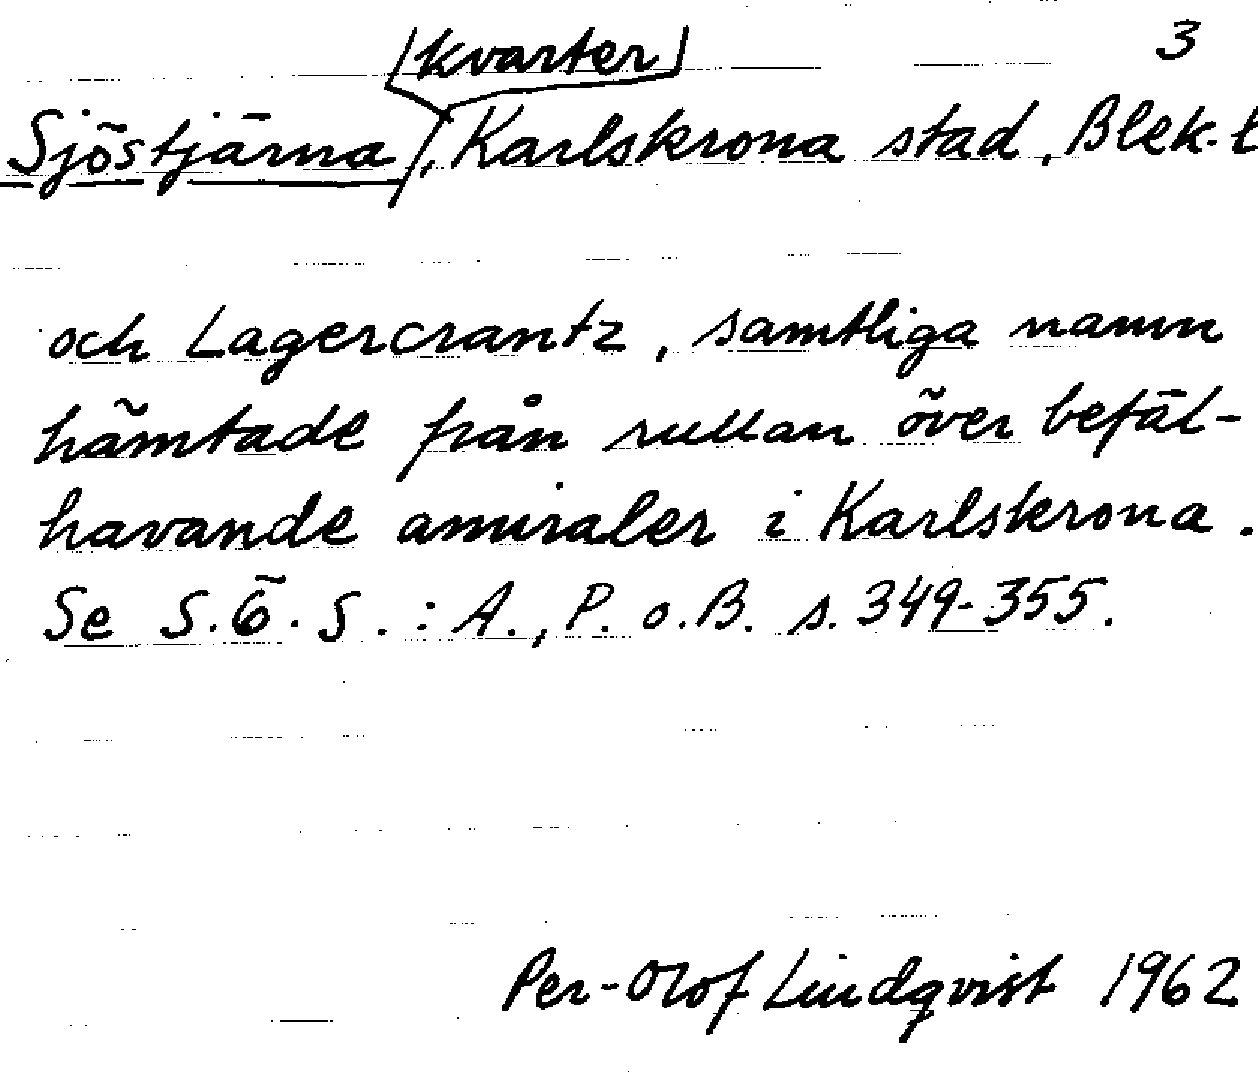 kvarter 3
Sjöstjärna, Karlskrona stad, Blek. l
och Lagercrantz, samtliga namn
hämtade från rullan över befäl-
havande amiraler i Karlskrona.
Se S.Ö.S.: A., P. o. B. s. 349-355.
Per-Olof Lindqvist 1962